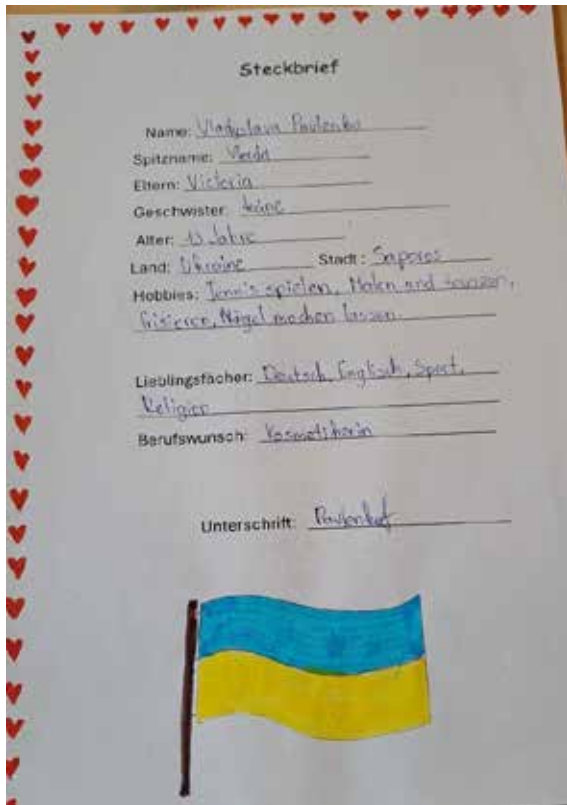 Steckbrief
Name: Vladyslava Pavlenko
Spitzname:
Eltern: Victoria
Geschwister: keine
Alter: 13 Jahre
Land: Ukraine Stadt: Saporos
Hobbies: Tennis spielen, Malen and tanzen,
frisieren, Nägel machen lassen.
Lieblingsfächer: Deutsch, Englisch, Sport,
Religion
Berufswunsch: Kosmetikerin
Unterschrift: